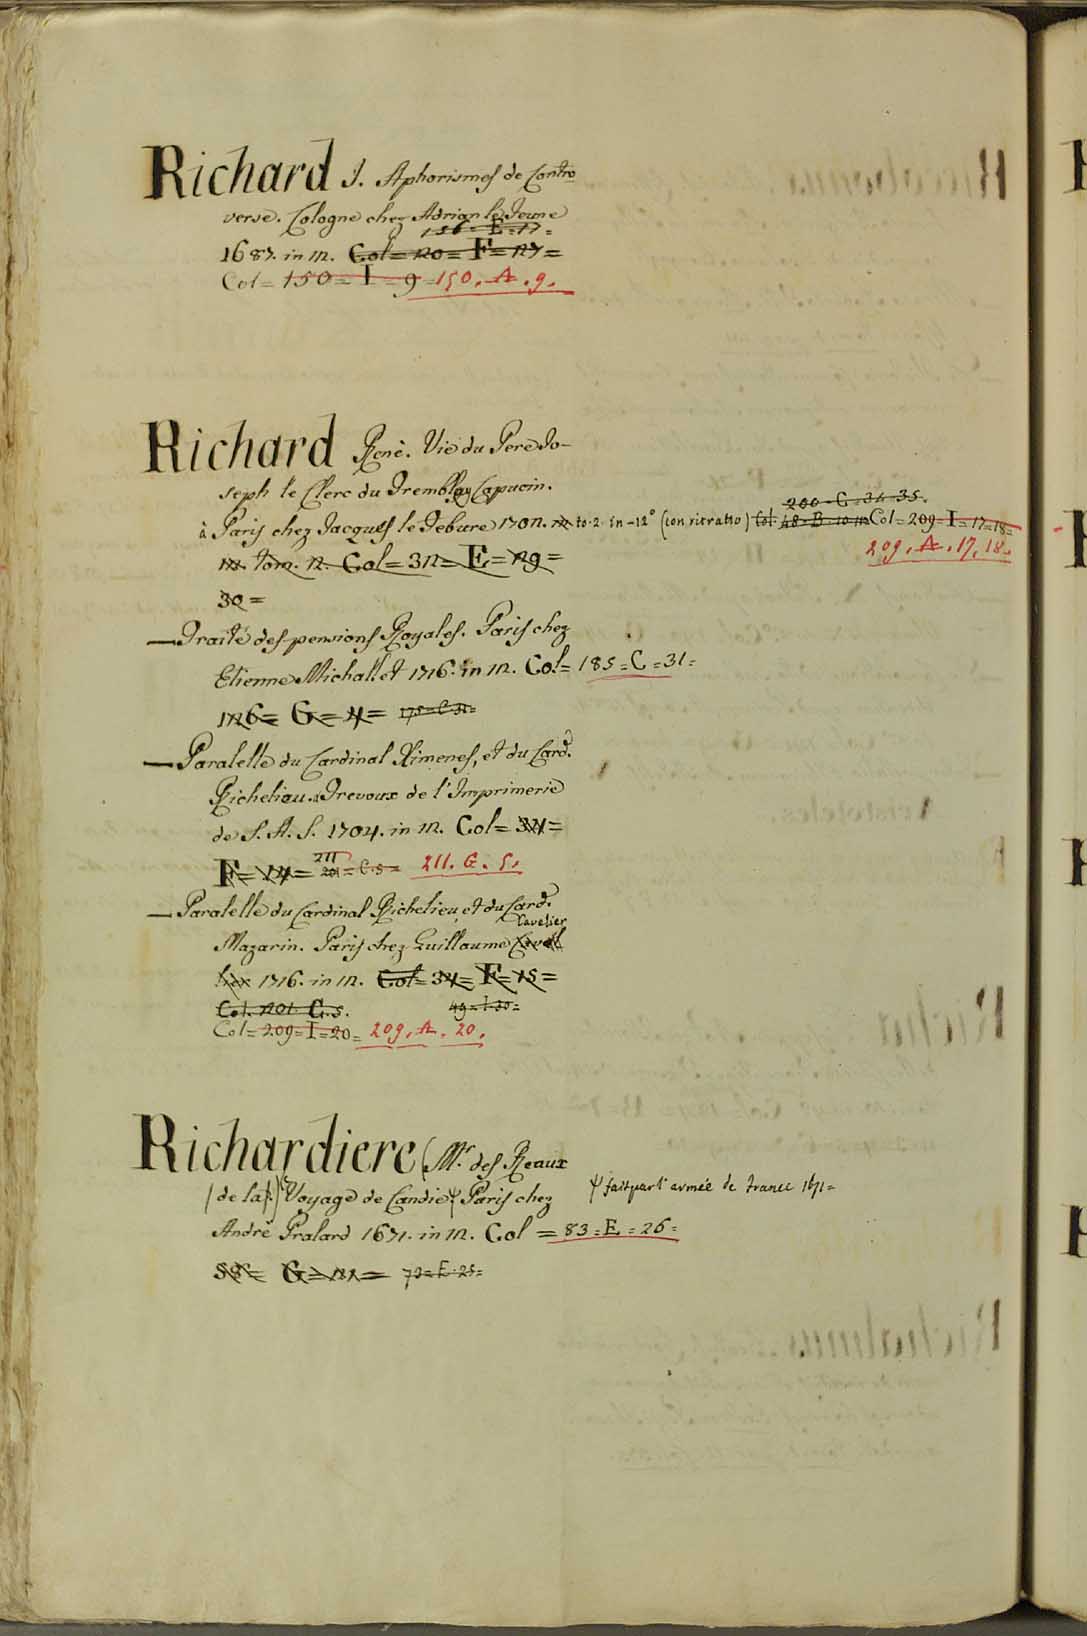 Richard J. Aphorismes de Contro
verse. Cologne chez Adrian le Jeune
156 = E = 17 =
1687. in 12. Col = 120 = F = 127 =
Col = 150 = I = 9 = 150. A. 9.
Richard René. Vie du Pere Jo-
seph le Clerc du Tremblay Capucin.
200 = C = 34 = 35.
à Paris chez Jacques le Febure 1702. to. 2. in-12° (con ritratto) Col. Col = 209 = I = 17 = 18 =
209. A. 17, 18.
in tom. 2. Col = 32 = E = 29 =
30 =
— Traité des pensions Royales. Paris chez
Etienne Michallet 1716. in 12. Col = 185 = C = 31 =
126 = G = 4 = 175 = C = 31 =
— Paralelle du Cardinal Ximenes, et du Card.
Richelieu. à Trevoux de l'Imprimerie
de S. A. S. 1704. in 12. Col = 34 =
F = 14 = 211 201 = C. 5 = 211. C. 5.
— Paralelle du Cardinal Richelieu, et du Card.
Cavelier
Mazarin. Paris chez Guillaume Caval
lier 1716. in 12. Col = 34 = F = 15 =
Col. 201. C. 5. 49 = I. 20 =
Col = 209 = I = 20 = 209. A. 20.
Richardiere (Mr. des Reaux
(de la) Voyage de Candie Ψ Paris chez Ψ fait par l'armée de France 1671 =
André Pralard 1671. in 12. Col = 83 = E = 26 =
58 = G = 121 = 73 = E = 25 =